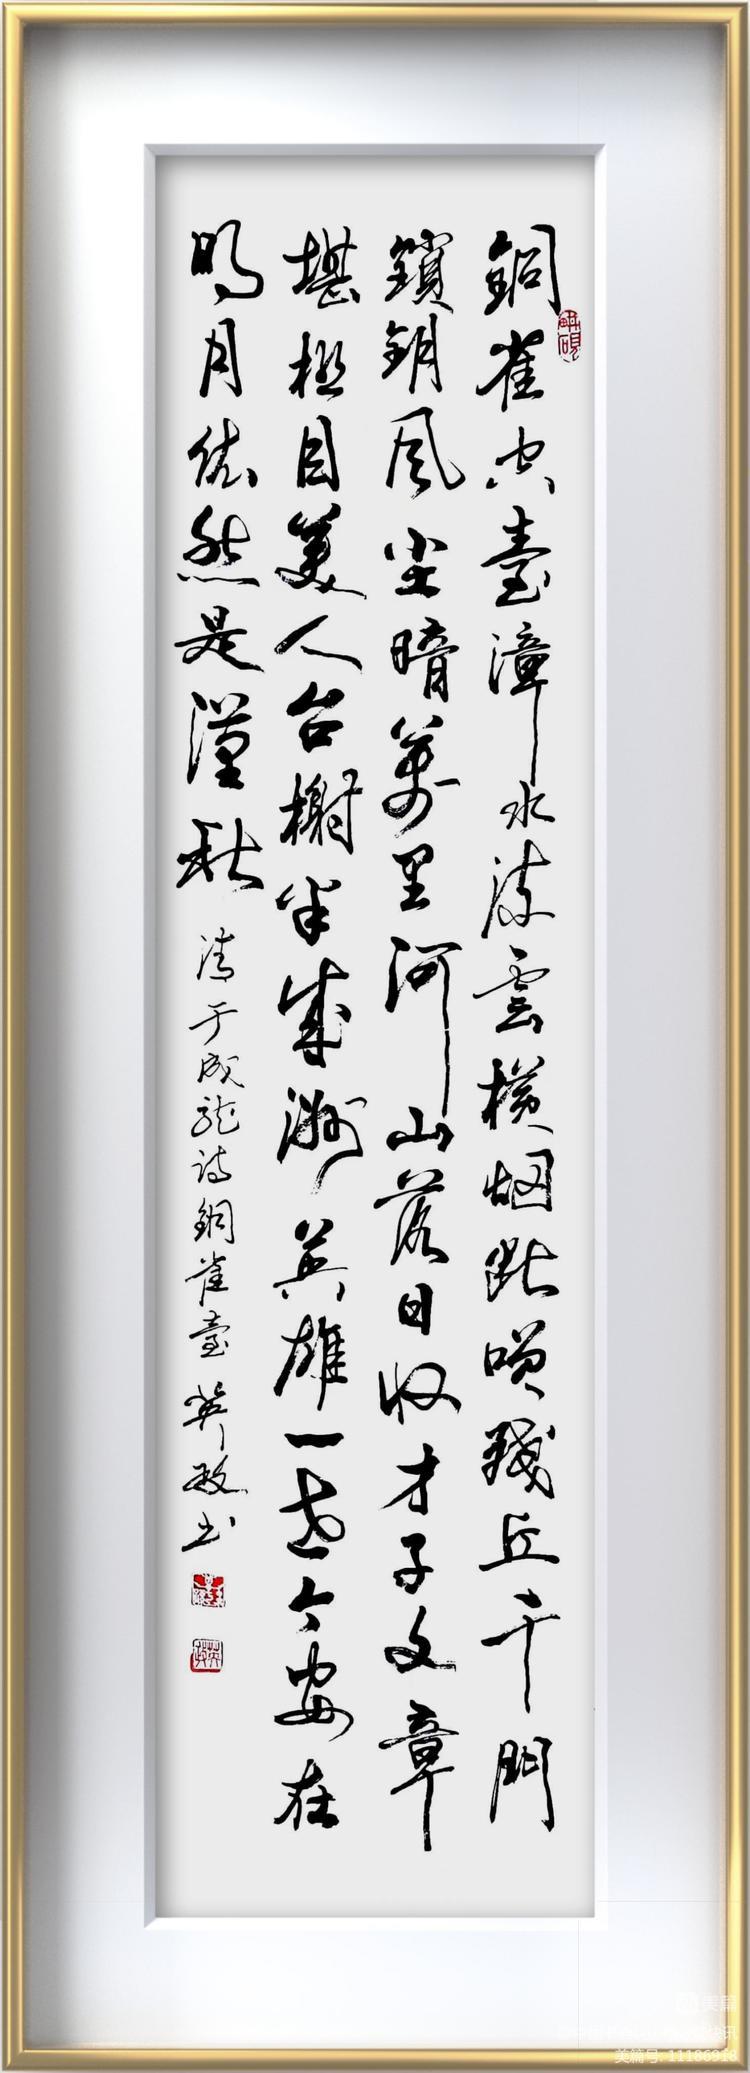 銅雀空臺漳水流雲橫烟點嘆殘丘千門
鎖鑰風塵暗萬里河山落日收才子文章
堪極目美人台榭半成洲英雄一世今安在
明月依然是漢秋
清于成龍詩銅雀臺英政书
美篇
美篇号: 11186918